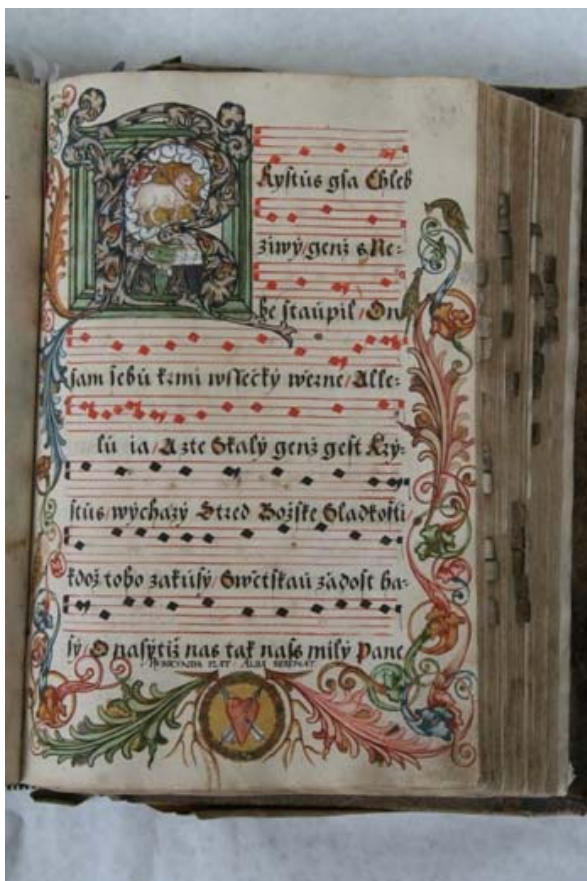 Krystůs gsa Chleb
žiwý/genž s Ne-
be staupil/On
sám sebů krmí wssecky wěrne/Alle-
lů ia/A z te Skalý genž gest Kry-
stůs/wýchazý Stred Božske Sladkosti/
kdož toho zakusý/Swětskaů žádost ha-
sý/O nasýtiž nas tak nass milý Pane